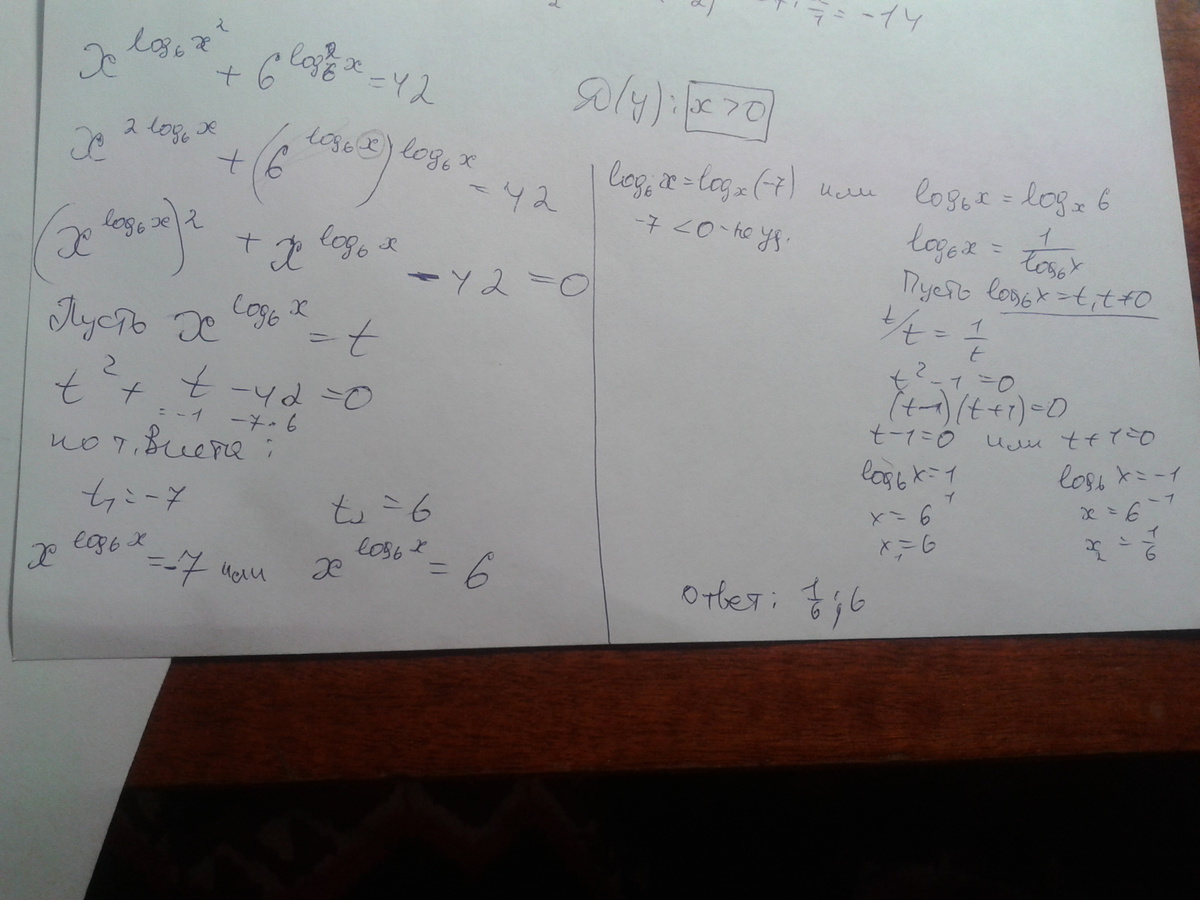 = -14
x^{log₆x²} + 6^{log₆²x} = 42
x^{2log₆x} + (6^{log₆x})^{log₆x} = 42
(x^{log₆x})² + x^{log₆x} - 42 = 0
Пусть x^{log₆x} = t
t² + t - 42 = 0
= -1 -7·6
по т. Виета:
t₁ = -7 t₂ = 6
x^{log₆x} = -7 или x^{log₆x} = 6
D(y): x > 0
log₆x = logₓ(-7) или log₆x = logₓ6
-7 < 0 - не уд.
log₆x = 1/log₆x
Пусть log₆x = t, t ≠ 0
t/t = 1/t
t² - 1 = 0
(t-1)(t+1) = 0
t-1=0 или t+1=0
log₆x = 1 log₆x = -1
x = 6¹ x = 6⁻¹
x₁ = 6 x₂ = 1/6
Ответ: 1/6; 6